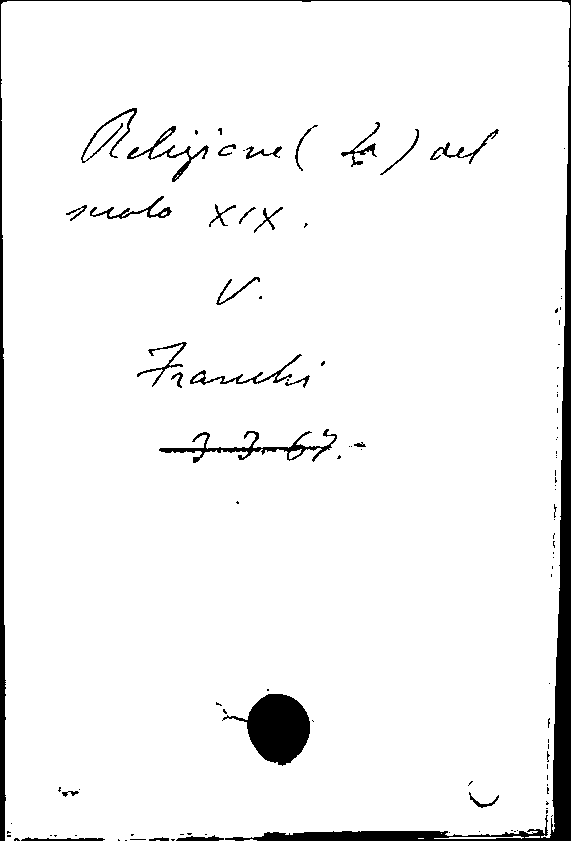 Religione (La) del
secolo XIX.
V.
Franchi
3.3.67.-